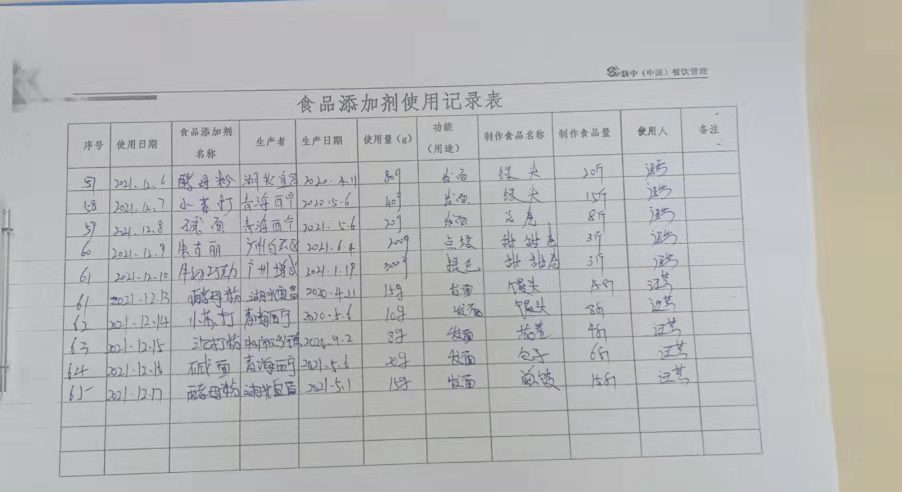 快中（中国）餐饮管理
食品添加剂使用记录表
序号 使用日期 食品添加剂名称 生产者 生产日期 使用量(g) 功能（用途） 制作食品名称 制作食品量 使用人 备注
57 2021.12.6 酵母粉 湖北宜昌 2020.4.11 80g 发面 馒头 20斤
58 2021.12.7 小苏打 青海西宁 2020.5.6 40g 发面 馒头 15斤
59 2021.12.8 碱面 青海西宁 2021.5.6 20g 发面 8斤
60 2021.12.9 朱古丽 广州白云区 2021.6.4 200g 点缀 甜甜卷 3斤
61 2021.12.10 广州 2021.1.19 300g 提色 甜甜卷 3斤
61 2021.12.13 酵母粉 湖北宜昌 2020.4.11 15g 发面 馒头
62 2021.12.14 小苏打 青海西宁 2020.5.6 10g 发面 馒头 8斤
63 2021.12.15 泡打粉 8g 发面 4斤
64 2021.12.16 碱面 青海西宁 2021.5.6 20g 发面 包子 6斤
65 2021.12.17 酵母粉 湖北宜昌 2021.5.1 15g 发面 15斤